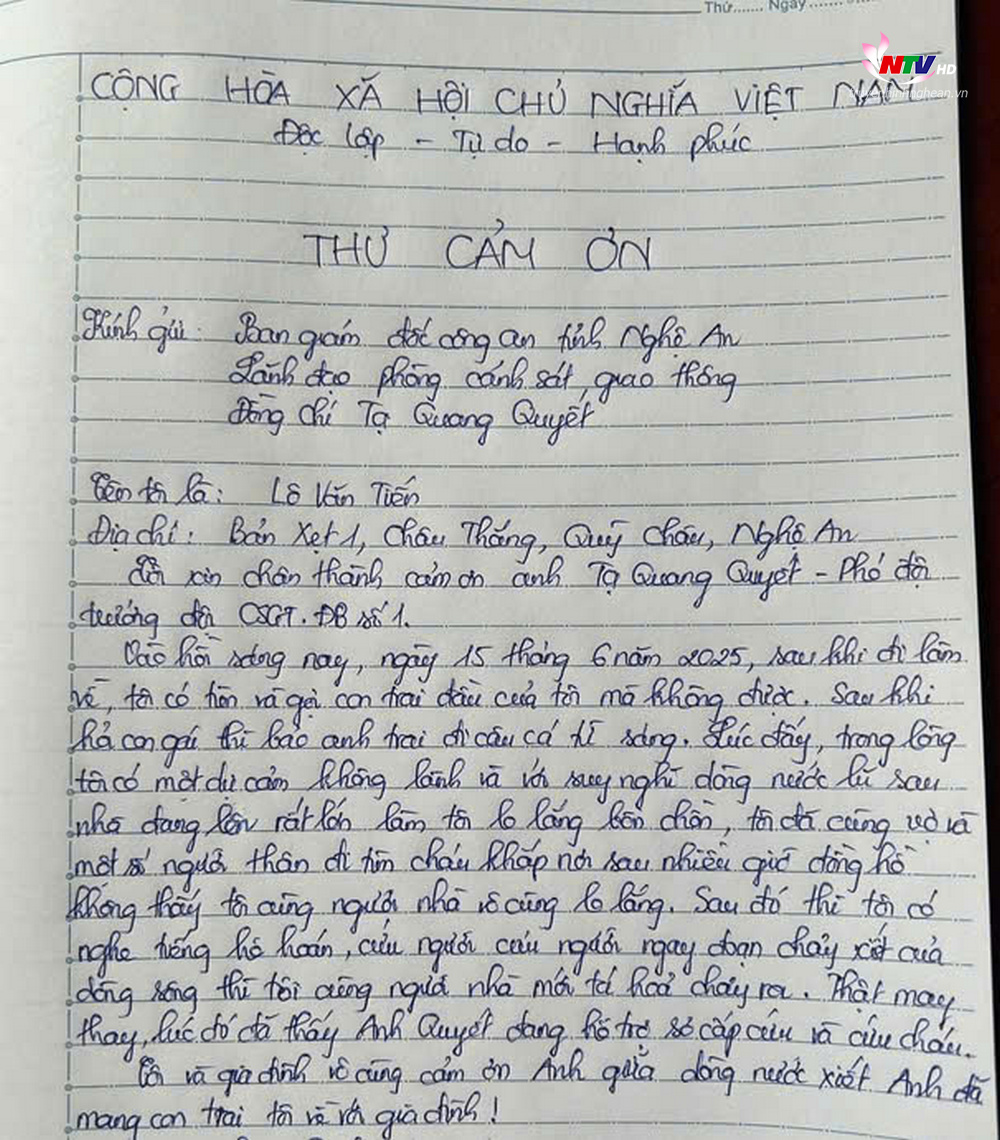 Thứ....... Ngày.......
NTV HD
CỘNG HÒA XÃ HỘI CHỦ NGHĨA VIỆT NAM
Độc lập - Tự do - Hạnh phúc
THƯ CẢM ƠN
Kính gửi: Ban giám đốc công an tỉnh Nghệ An
Lãnh đạo phòng cảnh sát, giao thông
Đồng chí Tạ Quang Quyết
Tên tôi là: Lô Văn Tiến
Địa chỉ: Bản Xẹt 1, Châu Thắng, Quỳ Châu, Nghệ An
Tôi xin chân thành cảm ơn anh Tạ Quang Quyết - Phó đội
trưởng đội CSGT. ĐB số 1.
Vào hồi sáng nay, ngày 15 tháng 6 năm 2025, sau khi đi làm
về, tôi có tìm và gọi con trai đầu của tôi mà không được. Sau khi
hỏi con gái thì bảo anh trai đi câu cá từ sáng. Lúc đấy, trong lòng
tôi có một dự cảm không lành và với suy nghĩ dòng nước lũ sau
nhà đang lên rất lớn làm tôi lo lắng bồn chồn, tôi đã cùng vợ và
một số người thân đi tìm cháu khắp nơi sau nhiều giờ đồng hồ
không thấy tôi cùng người nhà vô cùng lo lắng. Sau đó thì tôi có
nghe tiếng hô hoán, cứu người cứu người ngay đoạn chảy xiết của
dòng sông thì tôi cùng người nhà mới tá hoả chạy ra. Thật may
thay, lúc đó đã thấy Anh Quyết đang hỗ trợ sơ cấp cứu và cứu cháu.
Tôi và gia đình vô cùng cảm ơn Anh giữa dòng nước xiết Anh đã
mang con trai tôi về với gia đình!